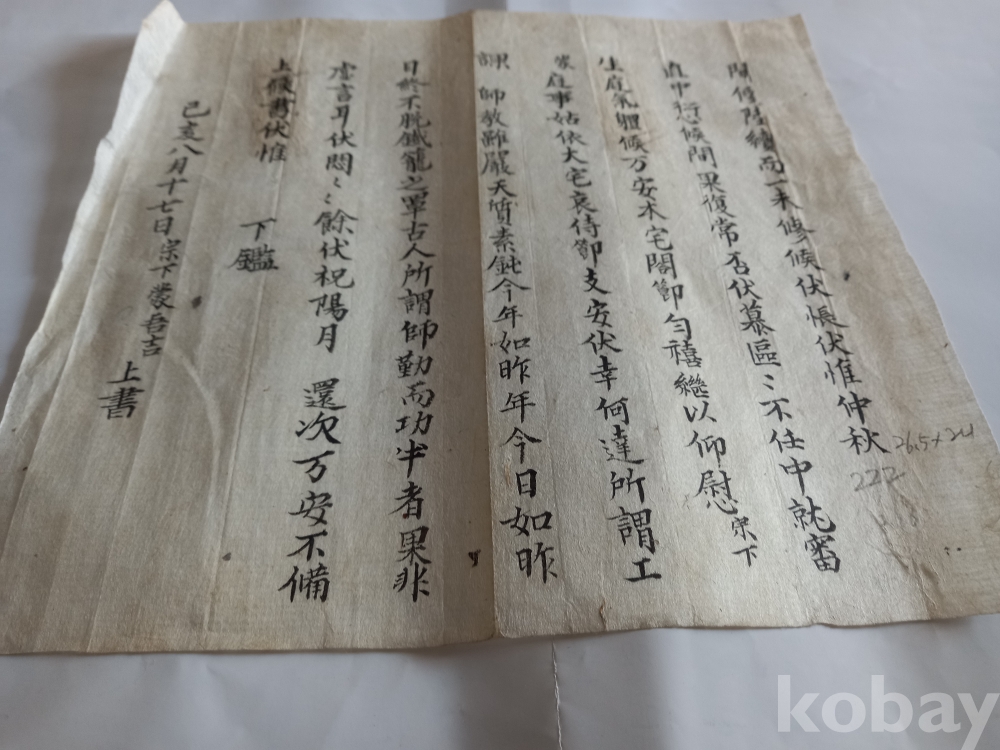 閒停陸續而一未修候伏悵伏惟仲秋
直中行候間果復常否伏慕區〻不任中就審
生庭氣軆候万安本宅閤節匀禧繼以仰慰宗下
家庭事姑依大宅哀侍節支安伏幸何達所謂工
課師教雖嚴天質素鈍今年如昨年今日如昨
日終不脫鐵籠之罩古人所謂師勤而功半者果非
虛言耳伏悶〻餘伏祝陽月還次万安不備
上候書伏惟
下鑑
己亥八月十七日宗下裵吾吉
上書
26.5×24
222
kobay